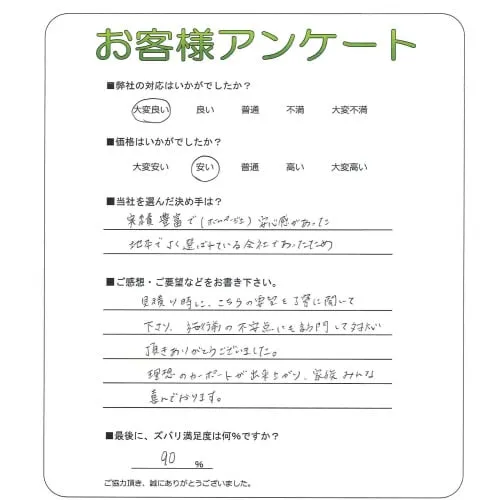 お客様アンケート
■弊社の対応はいかがでしたか?
大変良い 良い 普通 不満 大変不満
■価格はいかがでしたか?
大変安い 安い 普通 高い 大変高い
■当社を選んだ決め手は?
実績豊富で(ホームページ上)安心感があった
地本でよく選ばれている会社であったため
■ご感想・ご要望などをお書き下さい。
見積り時に、こちらの要望を丁寧に聞いて
下さり、 の不安点にも訪問して対応
頂きありがとうございました。
理想のカーポートが出来上がり、家族みんな
喜んでおります。
■最後に、ズバリ満足度は何%ですか?
90 %
ご協力頂き、誠にありがとうございました。